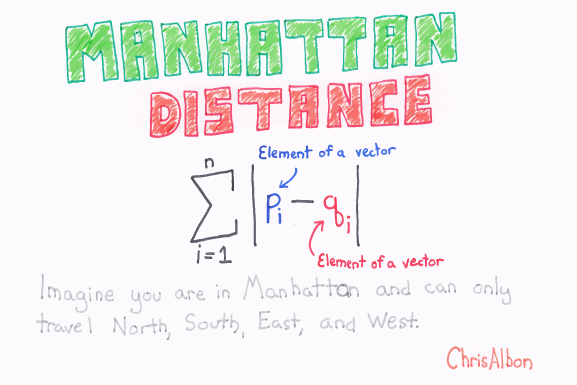 MANHATTAN
DISTANCE
Element of a vector
n
∑ | pi − qi |
i=1
Element of a vector
Imagine you are in Manhattan and can only
travel North, South, East, and West.
ChrisAlbon